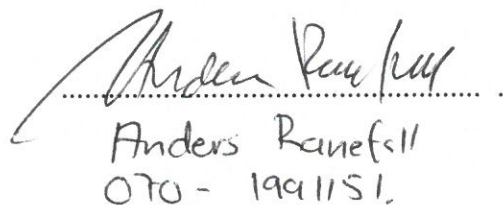 Anders Ranefall
Anders Ranefall
070 - 1991151.